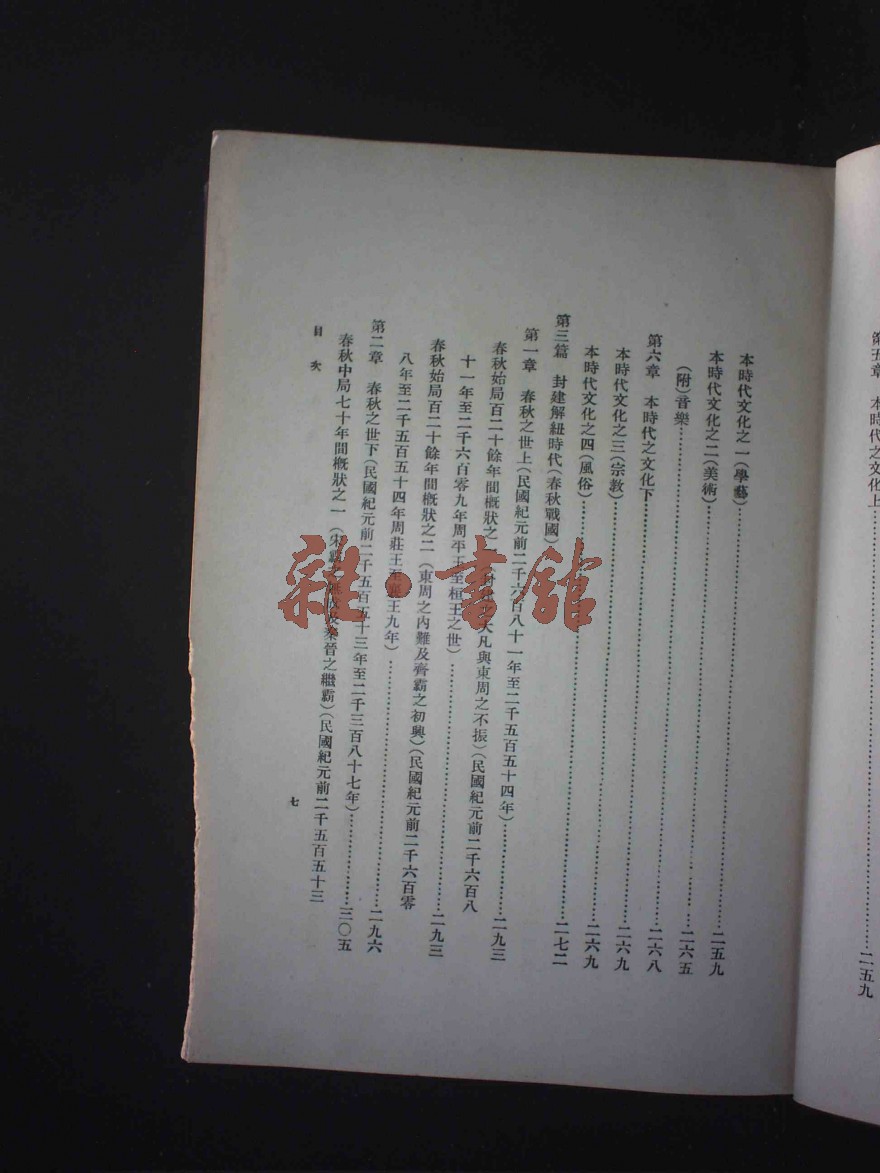 第五章 本時代之文化上……二五九
本時代文化之一(學藝)……二五九
本時代文化之二(美術)……二六五
(附)音樂……二六八
第六章 本時代之文化下……二六九
本時代文化之三(宗教)……二六九
本時代文化之四(風俗)……二七二
第三篇 封建解紐時代(春秋戰國)
第一章 春秋之世上(民國紀元前二千六百八十一年至二千五百五十四年)……二九三
春秋始局百二十餘年間概狀之一(封建之大凡與東周之不振)(民國紀元前二千六百八
十一年至二千六百零九年周平王至桓王之世)……二九三
春秋始局百二十餘年間概狀之二(東周之內難及齊霸之初興)(民國紀元前二千六百零
八年至二千五百五十四年周莊王至襄王九年)……二九六
第二章 春秋之世下(民國紀元前二千五百五十三年至二千三百八十七年)……三〇五
春秋中局七十年間概狀之一(宋霸之及秦晉之繼霸)(民國紀元前二千五百五十三
目次
七
雜·書館